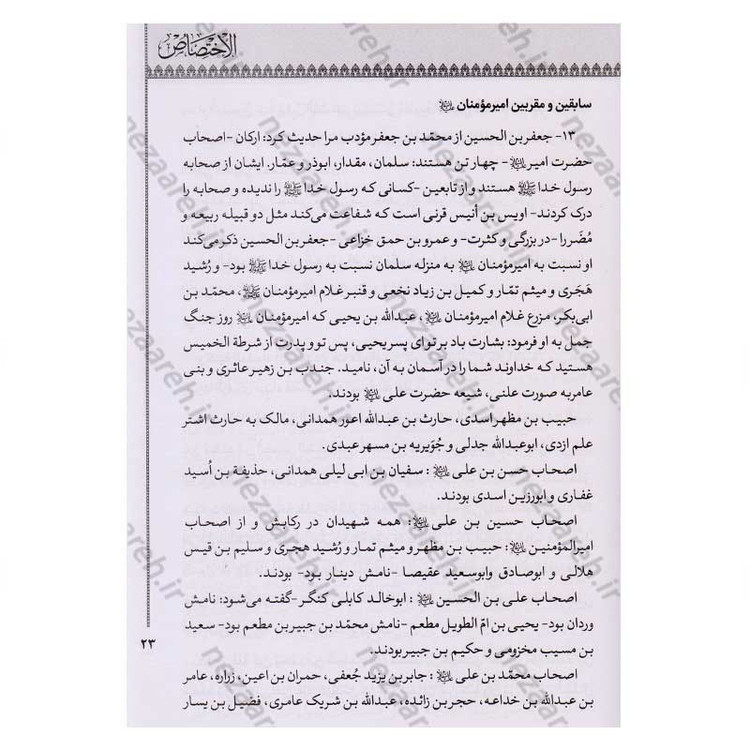 الاختصاص
سابقین و مقربین امیرمؤمنان ﷷ
۱۳- جعفر بن الحسین از محمّد بن جعفر مؤدب مرا حدیث کرد: ارکان -اصحاب
حضرت امیر - چهار تن هستند: سلمان، مقدار، ابوذر و عمّار. ایشان از صحابه
رسول خدا ﷺ هستند و از تابعین -کسانی که رسول خدا ﷺ را ندیده و صحابه را
درک کردند- اویس بن أنیس قرنی است که شفاعت می‌کند مثل دو قبیله ربیعه و
مُضَر را -در بزرگی و کثرت- و عمرو بن حمق خزاعی -جعفر بن الحسین ذکر می‌کند
او نسبت به امیرمؤمنان به منزله سلمان نسبت به رسول خدا ﷺ بود- و رُشید
هَجَری و میثم تمّار و کمیل بن زیاد نخعی و قنبر غلام امیرمؤمنان ، محمّد بن
ابی‌بکر، مزرع غلام امیرمؤمنان ، عبدالله بن یحیی که امیرمؤمنان روز جنگ
جمل به او فرمود: بشارت باد بر تو ای پسر یحیی، پس تو و پدرت از شرطة الخمیس
هستید که خداوند شما را در آسمان به آن، نامید. جندب بن زهیر عاثری و بنی
عامر به صورت علنی، شیعه حضرت علی بودند.
حبیب بن مظهر اسدی، حارث بن عبدالله اعور همدانی، مالک به حارث اشتر
علم ازدی، ابوعبدالله جدلی و جُوَیریه بن مسهر عبدی.
اصحاب حسن بن علی : سفیان بن ابی لیلی همدانی، حذیفة بن أسید
غفاری و ابورزین اسدی بودند.
اصحاب حسین بن علی : همه شهیدان در رکابش و از اصحاب
امیرالمؤمنین : حبیب بن مظهر و میثم تمار و رُشید هجری و سلیم بن قیس
هلالی و ابوصادق وابوسعید عقیصا -نامش دینار بود- بودند.
اصحاب علی بن الحسین : ابوخالد کابلی کنگر -گفته می‌شود: نامش
وردان بود- یحیی بن امّ الطویل مطعم -نامش محمّد بن جبیر بن مطعم بود- سعید
بن مسیب مخزومی و حکیم بن جبیر بودند.
۲۳
اصحاب محمّد بن علی : جابر بن یزید جُعفی، حمران بن اعین، زراره، عامر
بن عبدالله بن خداعه، حجر بن زائده، عبدالله بن شریک عامری، فضیل بن یسار
nezaareh.ir